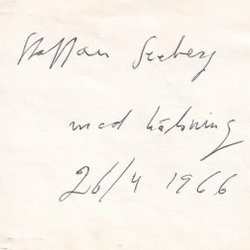 Staffan Seeberg
med hälsning
26/4 1966